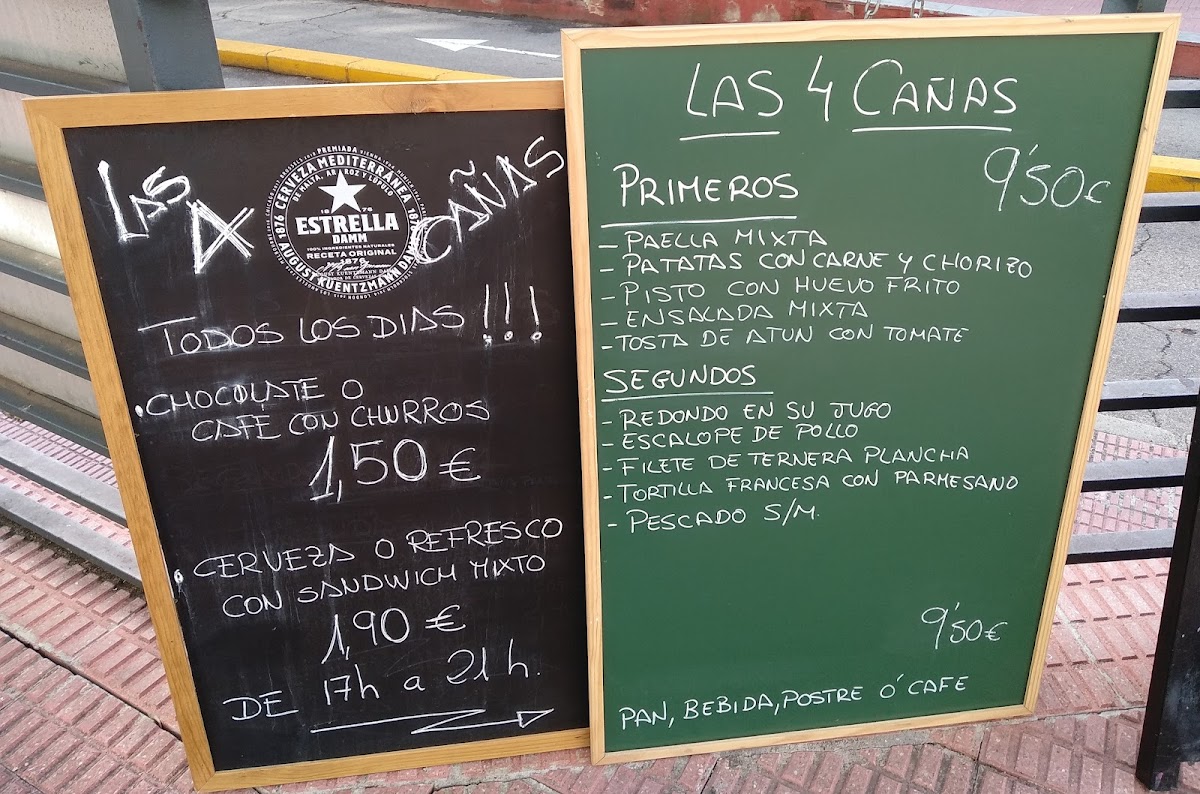 LAS 4 CAÑAS
PREMIADA
CERVEZA MEDITERRÁNEA
DE MALTA, ARROZ Y LÚPULO
1876
1876
1876
ESTRELLA
DAMM
100% INGREDIENTES NATURALES
RECETA ORIGINAL
1876
AUGUST KUENTZMANN DAMM
TODOS LOS DIAS !!!
·CHOCOLATE O
CAFÉ CON CHURROS
1,50 €
·CERVEZA O REFRESCO
CON SANDWICH MIXTO
1,90 €
DE 17h a 21h.
LAS 4 CAÑAS
9'50€
PRIMEROS
- PAELLA MIXTA
- PATATAS CON CARNE Y CHORIZO
- PISTO CON HUEVO FRITO
- ENSALADA MIXTA
- TOSTA DE ATUN CON TOMATE
SEGUNDOS
- REDONDO EN SU JUGO
- ESCALOPE DE POLLO
- FILETE DE TERNERA PLANCHA
- TORTILLA FRANCESA CON PARMESANO
- PESCADO S/M.
9'50€
PAN, BEBIDA, POSTRE Ó CAFE